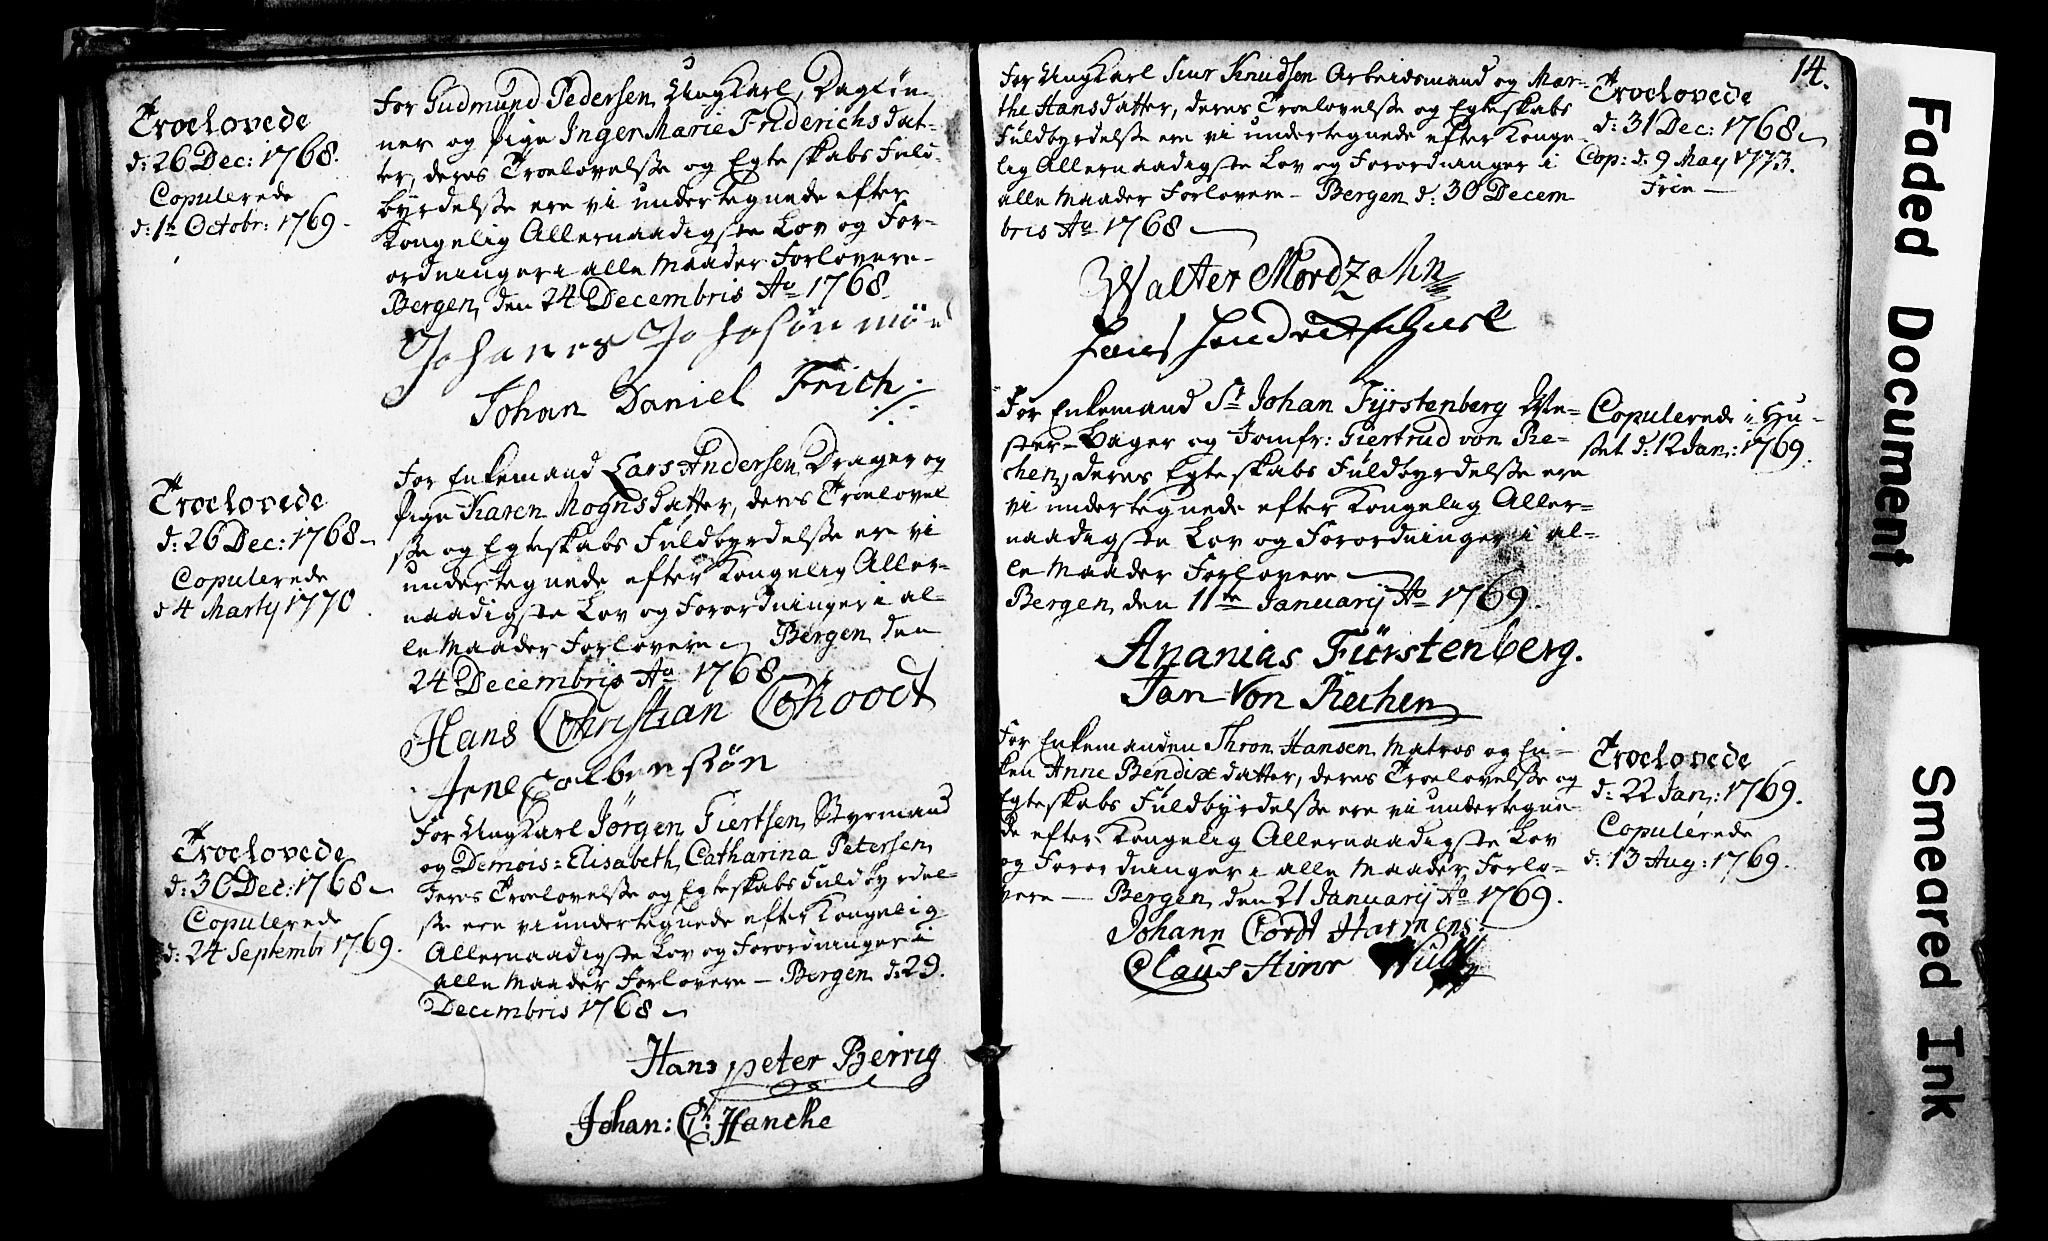 Troelovede
d: 26 Dec: 1768.
Copulerede
d: 1te Octobr: 1769.
For Gudmund Pedersen, Ungkarl, Dagløn-
ner og Pige Inger Marie Friderichsdat-
ter, deres Troelovelsse og Egteskabs Fuld-
byrdelsse ere vi undertegnede efter
Kongelig Allernaadigste Lov og For-
ordninger i alle Maader Forlovere.
Bergen, den 24 Decembris Ao 1768.
Johan Daniel Frich.
Troelovede
d: 26 Dec: 1768
Copulerede
d 4 Marty 1770.
For Enkemand Lars Andersen, Drager og
Pige Karen Mognsdatter, deres Troelovel
sse og Egteskabs Fuldbyrdelsse ere vi
undertegnede efter Kongelig Aller-
naadigste Lov og Forordninger i al-
le Maader Forlovere Bergen, den
24 Decembris Ao 1768
Hans Christian
Arne
Troelovede
d: 30 Dec: 1768
Copulerede
d: 24 Septembr 1769.
For Ungkarl Jörgen Tiertsen, Styrmand
og Demois: Elisabeth Catharina Petersen,
deres Troelovelsse og Egteskabs Fuldbyrdel-
sse ere vi undertegnede efter Kongelig
Allernaadigste Lov og Forordninger i
alle Maader Forlovere – Bergen d: 29.
Decembris 1768
Hans peter Berrig
Johan: Ch: Hancke
14.
For Ungkarl Siur Knudsen Arbeidsmand og Mar-
the Hansdatter, deres Troelovelsse og Egteskabs
Fuldbyrdelsse ere vi undertegnede efter Konge-
lig Allernaadigste Lov og Forordninger i
alle Maader Forlovere – Bergen d: 30 Decem
bris Ao 1768
Walter Mordzahn
Hans
Troelovede
d: 31 Dec: 1768
Cop: d: 9 May 1773.
Frie
For Enkemand Sr Johan Fyrstenberg
ster-Bager og Jomfr: Giertrud von Re-
chen, deres Egteskabs Fuldbyrdelsse ere
vi undertegnede efter Kongelig Aller-
naadigste Lov og Forordninger i al-
le Maader Forlovere
Bergen, den 11te Januarij Ao 1769.
Ananias Fürstenberg.
Jan Von Rechen
Copulerede i Hu-
set d: 12 Jan: 1769.
For Enkemanden Thron Hansen, Matros og En-
ken Anne Bendixdatter, deres Troelovelsse og
Egteskabs Fuldbyrdelsse ere vi undertegne-
de efter Kongelig Allernaadigste Lov
og Forordninger i alle Maader Forlo-
vere – Bergen, den 21 Januarij Ao 1769.
Johann Cordt Harmens
Claus Hinr
Troelovede
d: 22 Jan: 1769.
Copulerede
d: 13 Aug: 1769.
Faded Document
Smeared Ink